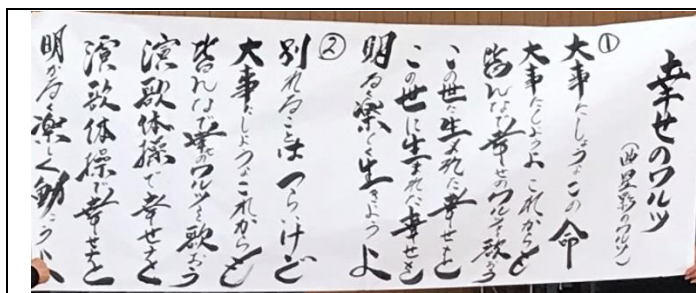 幸せのワルツ
(西星影のワルツ)
①
大事にしようなこの命
大事にしようよこれからも
皆んなで幸せのワルツを歌おう
この世に生まれた幸せを
この世に生まれた幸せを
明るく楽しく生きようよ
②
別れることはつらいけど
大事にしようなこれからも
皆んなで幸せのワルツを歌おう
演歌体操で幸せを
演歌体操で幸せを
明かるく楽しく動こうよ